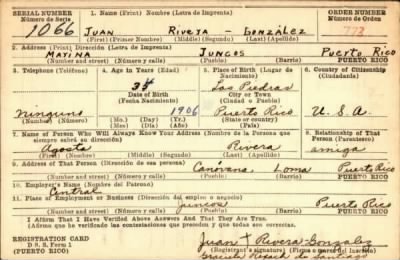 SERIAL NUMBER 1. Name (Print) Nombre (Letra de Imprenta) ORDER NUMBER
Número de Serie Número de Orden
1066 JUAN RIVERA GONZÁLEZ
(First) (Primer Nombre) (Middle) (Segundo) (Last) (Apellido)
2. Address (Print) Dirección (Letra de Imprenta)
MARINA JUNCOS Puerto Rico
Number and street) (Número y calle) (Pueblo) (Barrio) PUERTO RICO
3. Telephone (Teléfono) 4. Age in Years (Edad) 5. Place of Birth (Lugar de Nacimiento) 6. Country of Citizenship (Ciudadanía)
34 Las Piedras
Date of Birth City or Town
(Fecha Nacimiento) (Ciudad o Pueblo)
ninguno 1906 Puerto Rico U.S.A.
(Number) (Número) (Mo.) (Day) (Yr.) (State or country)
(Mes) (Día) (Año) (País)
7. Name of Person Who Will Always Know Your Address (Nombre de la Persona que siempre sabrá su dirección) 8. Relationship of That Person (Parentesco)
Rivera amiga
(First) (Nombre) (Middle) (Segundo) (Last) (Apellido)
9. Address of That Person (Dirección de esa persona)
Central Canóvana, Loiza Puerto Rico
Number and street) (Número y calle) (Pueblo) (Barrio) PUERTO RICO
10. Employer's Name (Nombre del Patrono)
11. Place of Employment or Business (Dirección del empleo o negocio)
Juncos Puerto Rico
(Number and street) (Número y calle) (Pueblo) (Barrio) PUERTO RICO
I Affirm That I Have Verified Above Answers And That They Are True.
Afirmo que he verificado las contestaciones que preceden y que todas son ciertas.
REGISTRATION CARD Juan X Rivera Gonzalez
D. S. S. Form 1 (Registrant's signature) (Firma o marca del Inscrito)
(PUERTO RICO) Graciela de Santiago